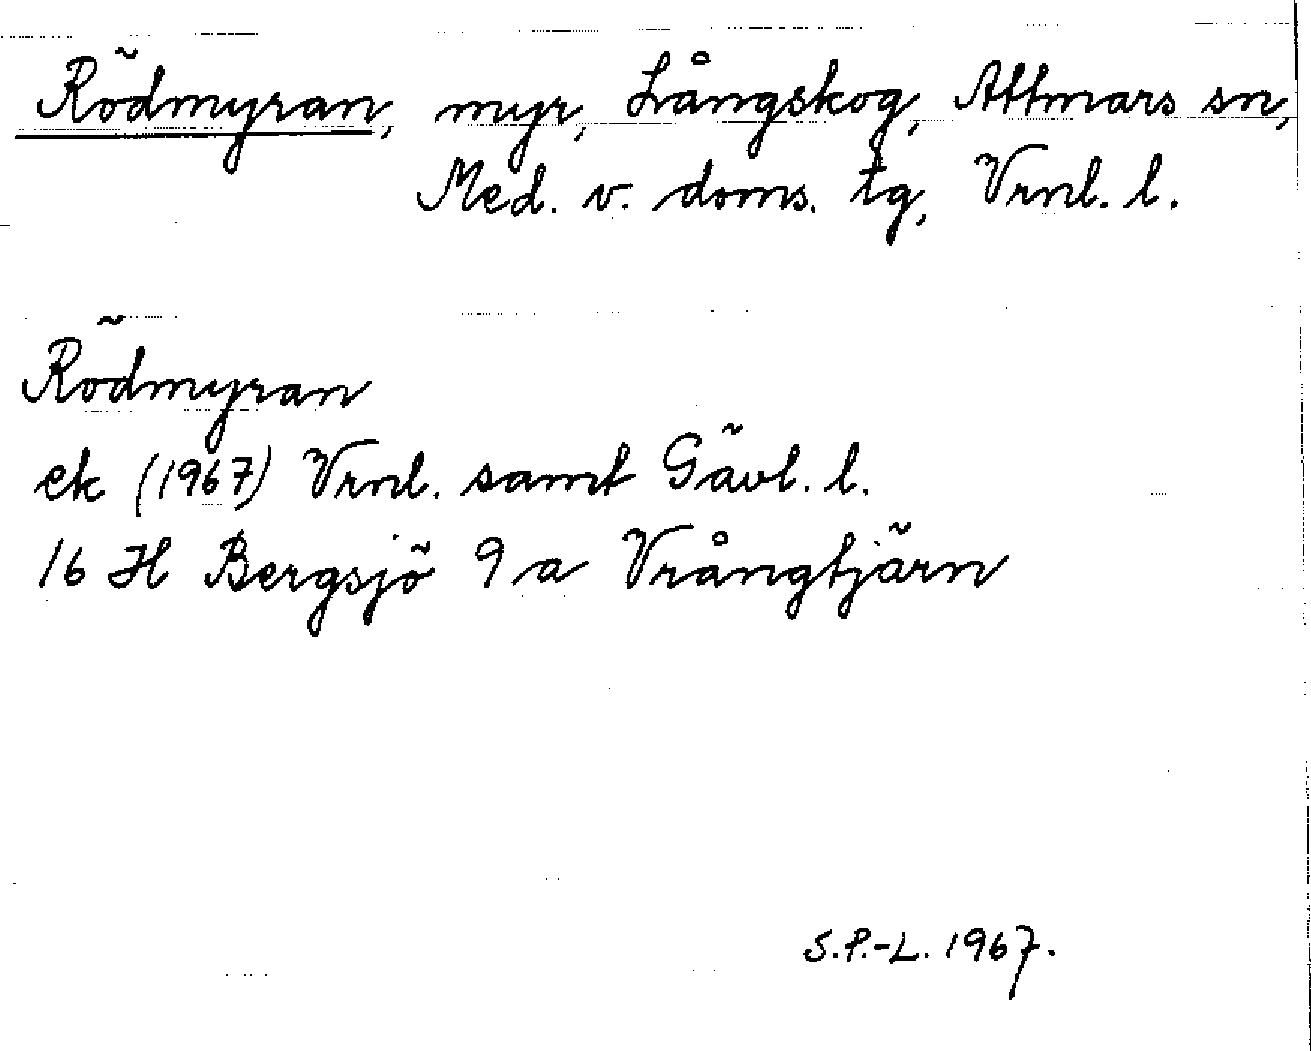 Rödmyran, myr, Långskog, Attmars sn,
Med. v. doms. tg, Vrnl. l.
Rödmyran
ek (1967) Vrnl. samt Gävl. l.
16 H Bergsjö 9 a Vrångtjärn
S.P.-L. 1967.